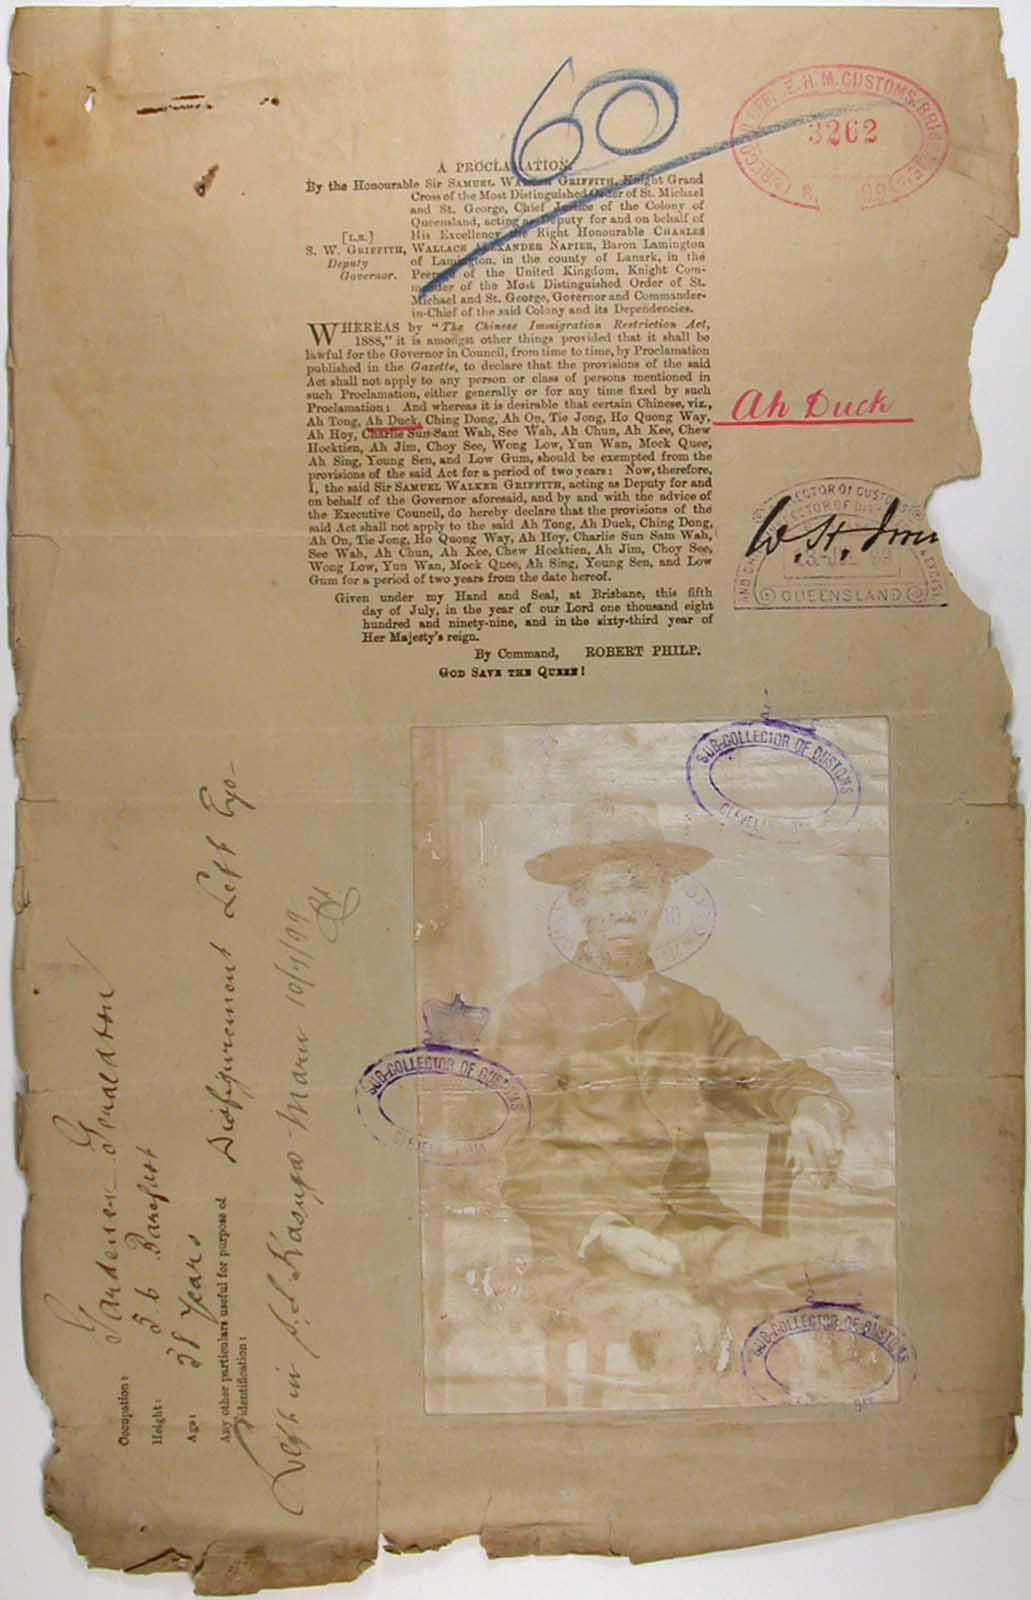 60
H.M. CUSTOMS, BRISBANE
3262
A PROCLAMATION.
By the Honourable Sir SAMUEL WALKER GRIFFITH, Knight Grand
Cross of the Most Distinguished Order of St. Michael
and St. George, Chief Justice of the Colony of
Queensland, acting as Deputy for and on behalf of
[L.S.] His Excellency the Right Honourable CHARLES
S. W. GRIFFITH, WALLACE ALEXANDER NAPIER, Baron Lamington
Deputy of Lamington, in the county of Lanark, in the
Governor. Peerage of the United Kingdom, Knight Com-
mander of the Most Distinguished Order of St.
Michael and St. George, Governor and Commander-
in-Chief of the said Colony and its Dependencies.
WHEREAS by "The Chinese Immigration Restriction Act,
1888," it is amongst other things provided that it shall be
lawful for the Governor in Council, from time to time, by Proclamation
published in the Gazette, to declare that the provisions of the said
Act shall not apply to any person or class of persons mentioned in
such Proclamation, either generally or for any time fixed by such
Proclamation: And whereas it is desirable that certain Chinese, viz.,
Ah Tong, Ah Duck, Ching Dong, Ah On, Tie Jong, Ho Quong Way,
Ah Hoy, Charlie Sun Sam Wah, See Wah, Ah Chun, Ah Kee, Chew
Hocktien, Ah Jim, Choy See, Wong Low, Yun Wan, Mock Quee,
Ah Sing, Young Sen, and Low Gum, should be exempted from the
provisions of the said Act for a period of two years: Now, therefore,
I, the said Sir SAMUEL WALKER GRIFFITH, acting as Deputy for and
on behalf of the Governor aforesaid, and by and with the advice of
the Executive Council, do hereby declare that the provisions of the
said Act shall not apply to the said Ah Tong, Ah Duck, Ching Dong,
Ah On, Tie Jong, Ho Quong Way, Ah Hoy, Charlie Sun Sam Wah,
See Wah, Ah Chun, Ah Kee, Chew Hocktien, Ah Jim, Choy See,
Wong Low, Yun Wan, Mock Quee, Ah Sing, Young Sen, and Low
Gum for a period of two years from the date hereof.
Given under my Hand and Seal, at Brisbane, this fifth
day of July, in the year of our Lord one thousand eight
hundred and ninety-nine, and in the sixty-third year of
Her Majesty's reign.
By Command, ROBERT PHILP.
GOD SAVE THE QUEEN!
Ah Duck
COLLECTOR OF CUSTOMS
W. H. Irvin
QUEENSLAND
SUB-COLLECTOR OF CUSTOMS
SUB-COLLECTOR OF CUSTOMS
SUB-COLLECTOR OF CUSTOMS
Occupation: Gardener Geraldton
Height: 5.6 Barefoot
Age: 38 Years
Any other particulars useful for purpose of
identification: Disfigurement Left Eye
Left in S.S. Kasuga Maru 10/7/99